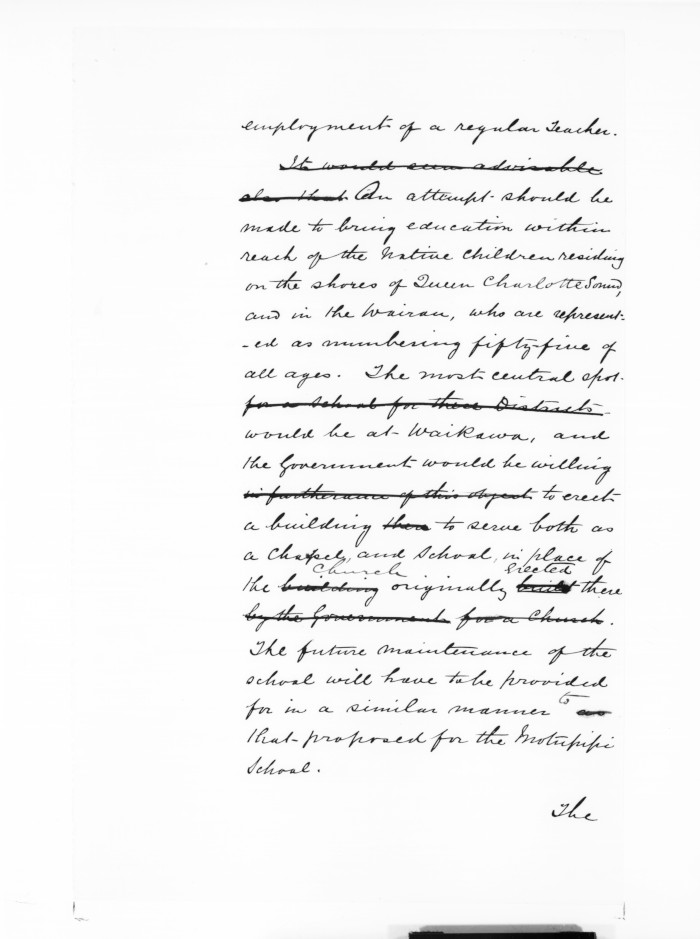 employment of a regular Teacher.
It would seem advisable
also that An attempt should be
made to bring education within
reach of the Native Children residing
on the shores of Queen Charlotte Sound,
and in the Wairau, who are represent-
-ed as numbering fifty-five of
all ages. The most central spot
for a School for these Districts
would be at Waikawa, and
the Government would be willing
in furtherance of this object to erect
a building there to serve both as
a Chapel, and School, in place of
Church erected
the building originally built there
by the Government for a Church.
The future maintenance of the
school will have to be provided
for in a similar manner to as
that proposed for the Motupipi
School.
The